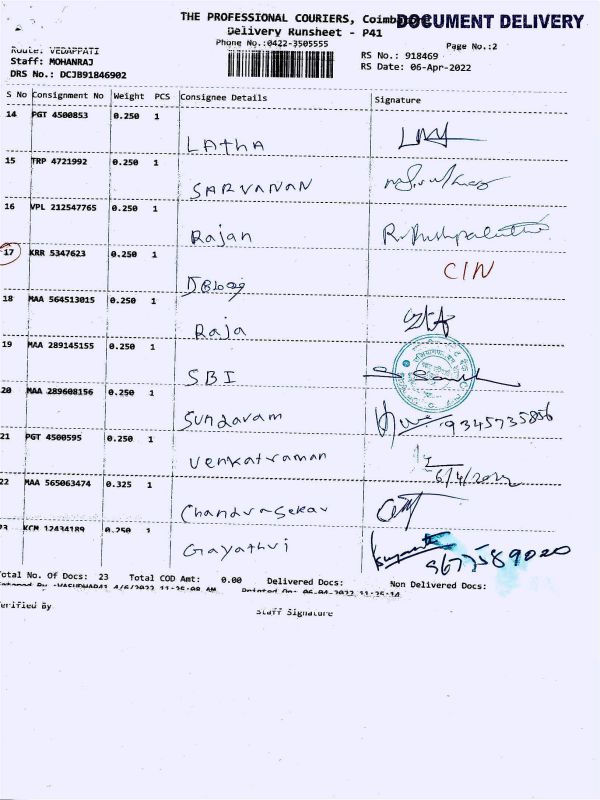 THE PROFESSIONAL COURIERS, Coimbatore
DOCUMENT DELIVERY
Delivery Runsheet - P41
Phone No.:0422-3505555
Page No.:2
Route: VEDAPPATI
RS No.: 918469
Staff: MOHANRAJ
RS Date: 06-Apr-2022
DRS No.: DCJB91846902
S No Consignment No Weight PCS Consignee Details Signature
14 PGT 4500853 0.250 1 Latha
15 TRP 4721992 0.250 1 SARVANAN
16 VPL 212547765 0.250 1 Rajan R. Pushpalatha
17 KRR 5347623 0.250 1 CIN
18 MAA 564513015 0.250 1 Raja
19 MAA 289145155 0.250 1 SBI
20 MAA 289608156 0.250 1 Sundaram 9345735856
21 PGT 4500595 0.250 1 Venkatraman 6/4/2022
22 MAA 565063474 0.325 1 Chandrasekar
23 KCM 12434189 0.250 1 Gayathri 9677589020
Total No. Of Docs: 23 Total COD Amt: 0.00 Delivered Docs: Non Delivered Docs:
4/6/2022 11:25:08 AM Printed On: 06-04-2022 11:25:14
Verified By
Staff Signature